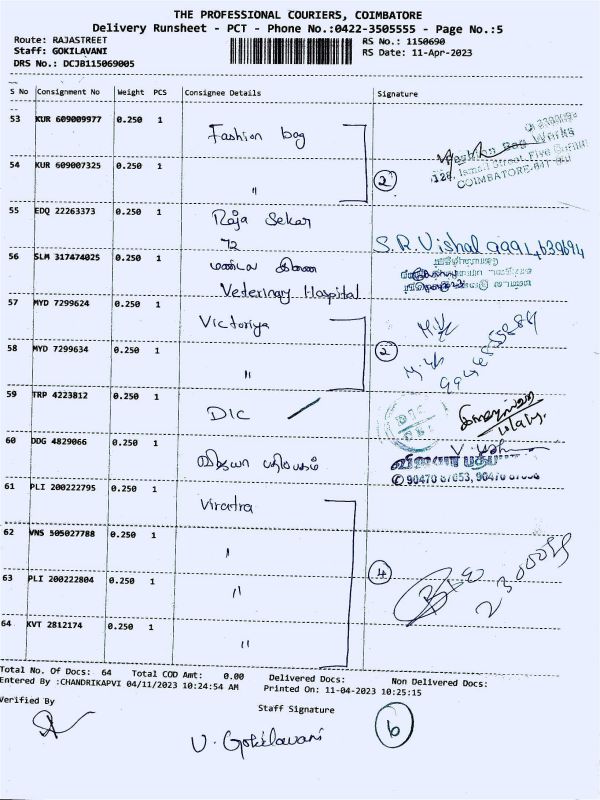 THE PROFESSIONAL COURIERS, COIMBATORE
Delivery Runsheet - PCT - Phone No.:0422-3505555 - Page No.:5
Route: RAJASTREET RS No.: 1150690
Staff: GOKILAVANI RS Date: 11-Apr-2023
DRS No.: DCJB115069005
S No Consignment No Weight PCS Consignee Details Signature
53 KUR 609009977 0.250 1 Fashion bag
Fashion Bag Works
54 KUR 609007325 0.250 1 " 2
126, Ismail Street, Five Corner
COIMBATORE-641 001
55 EDQ 22263373 0.250 1 Raja Sekar
72 S.R.Vishal
56 SLM 317474025 0.250 1 மண்டல இணை
Veterinary Hospital
57 MYD 7299624 0.250 1 Victoriya
58 MYD 7299634 0.250 1 " 2
59 TRP 4223812 0.250 1 DIC
60 DDG 4829066 0.250 1 விஜயா பதிப்பகம்
விஜயா பதிப்
61 PLI 200222795 0.250 1 Viratra
62 VNS 505027788 0.250 1 "
63 PLI 200222804 0.250 1 " 4
64 KVT 2812174 0.250 1 "
Total No. Of Docs: 64 Total COD Amt: 0.00 Delivered Docs: Non Delivered Docs:
Entered By :CHANDRIKAPVI 04/11/2023 10:24:54 AM Printed On: 11-04-2023 10:25:15
Verified By Staff Signature 6
V. Gokilavani